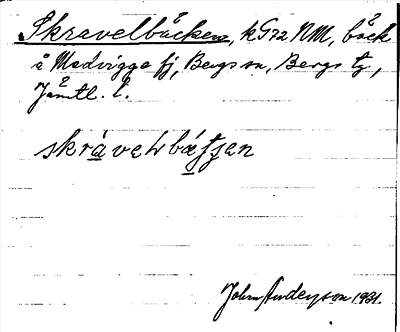 Skravelbäcken, kG72 NM, bäck
å Medvigge fj, Bergs sn, Bergs tg,
Jämtl. l.
skràvelbä̀ttjen
John Anderson 1931.